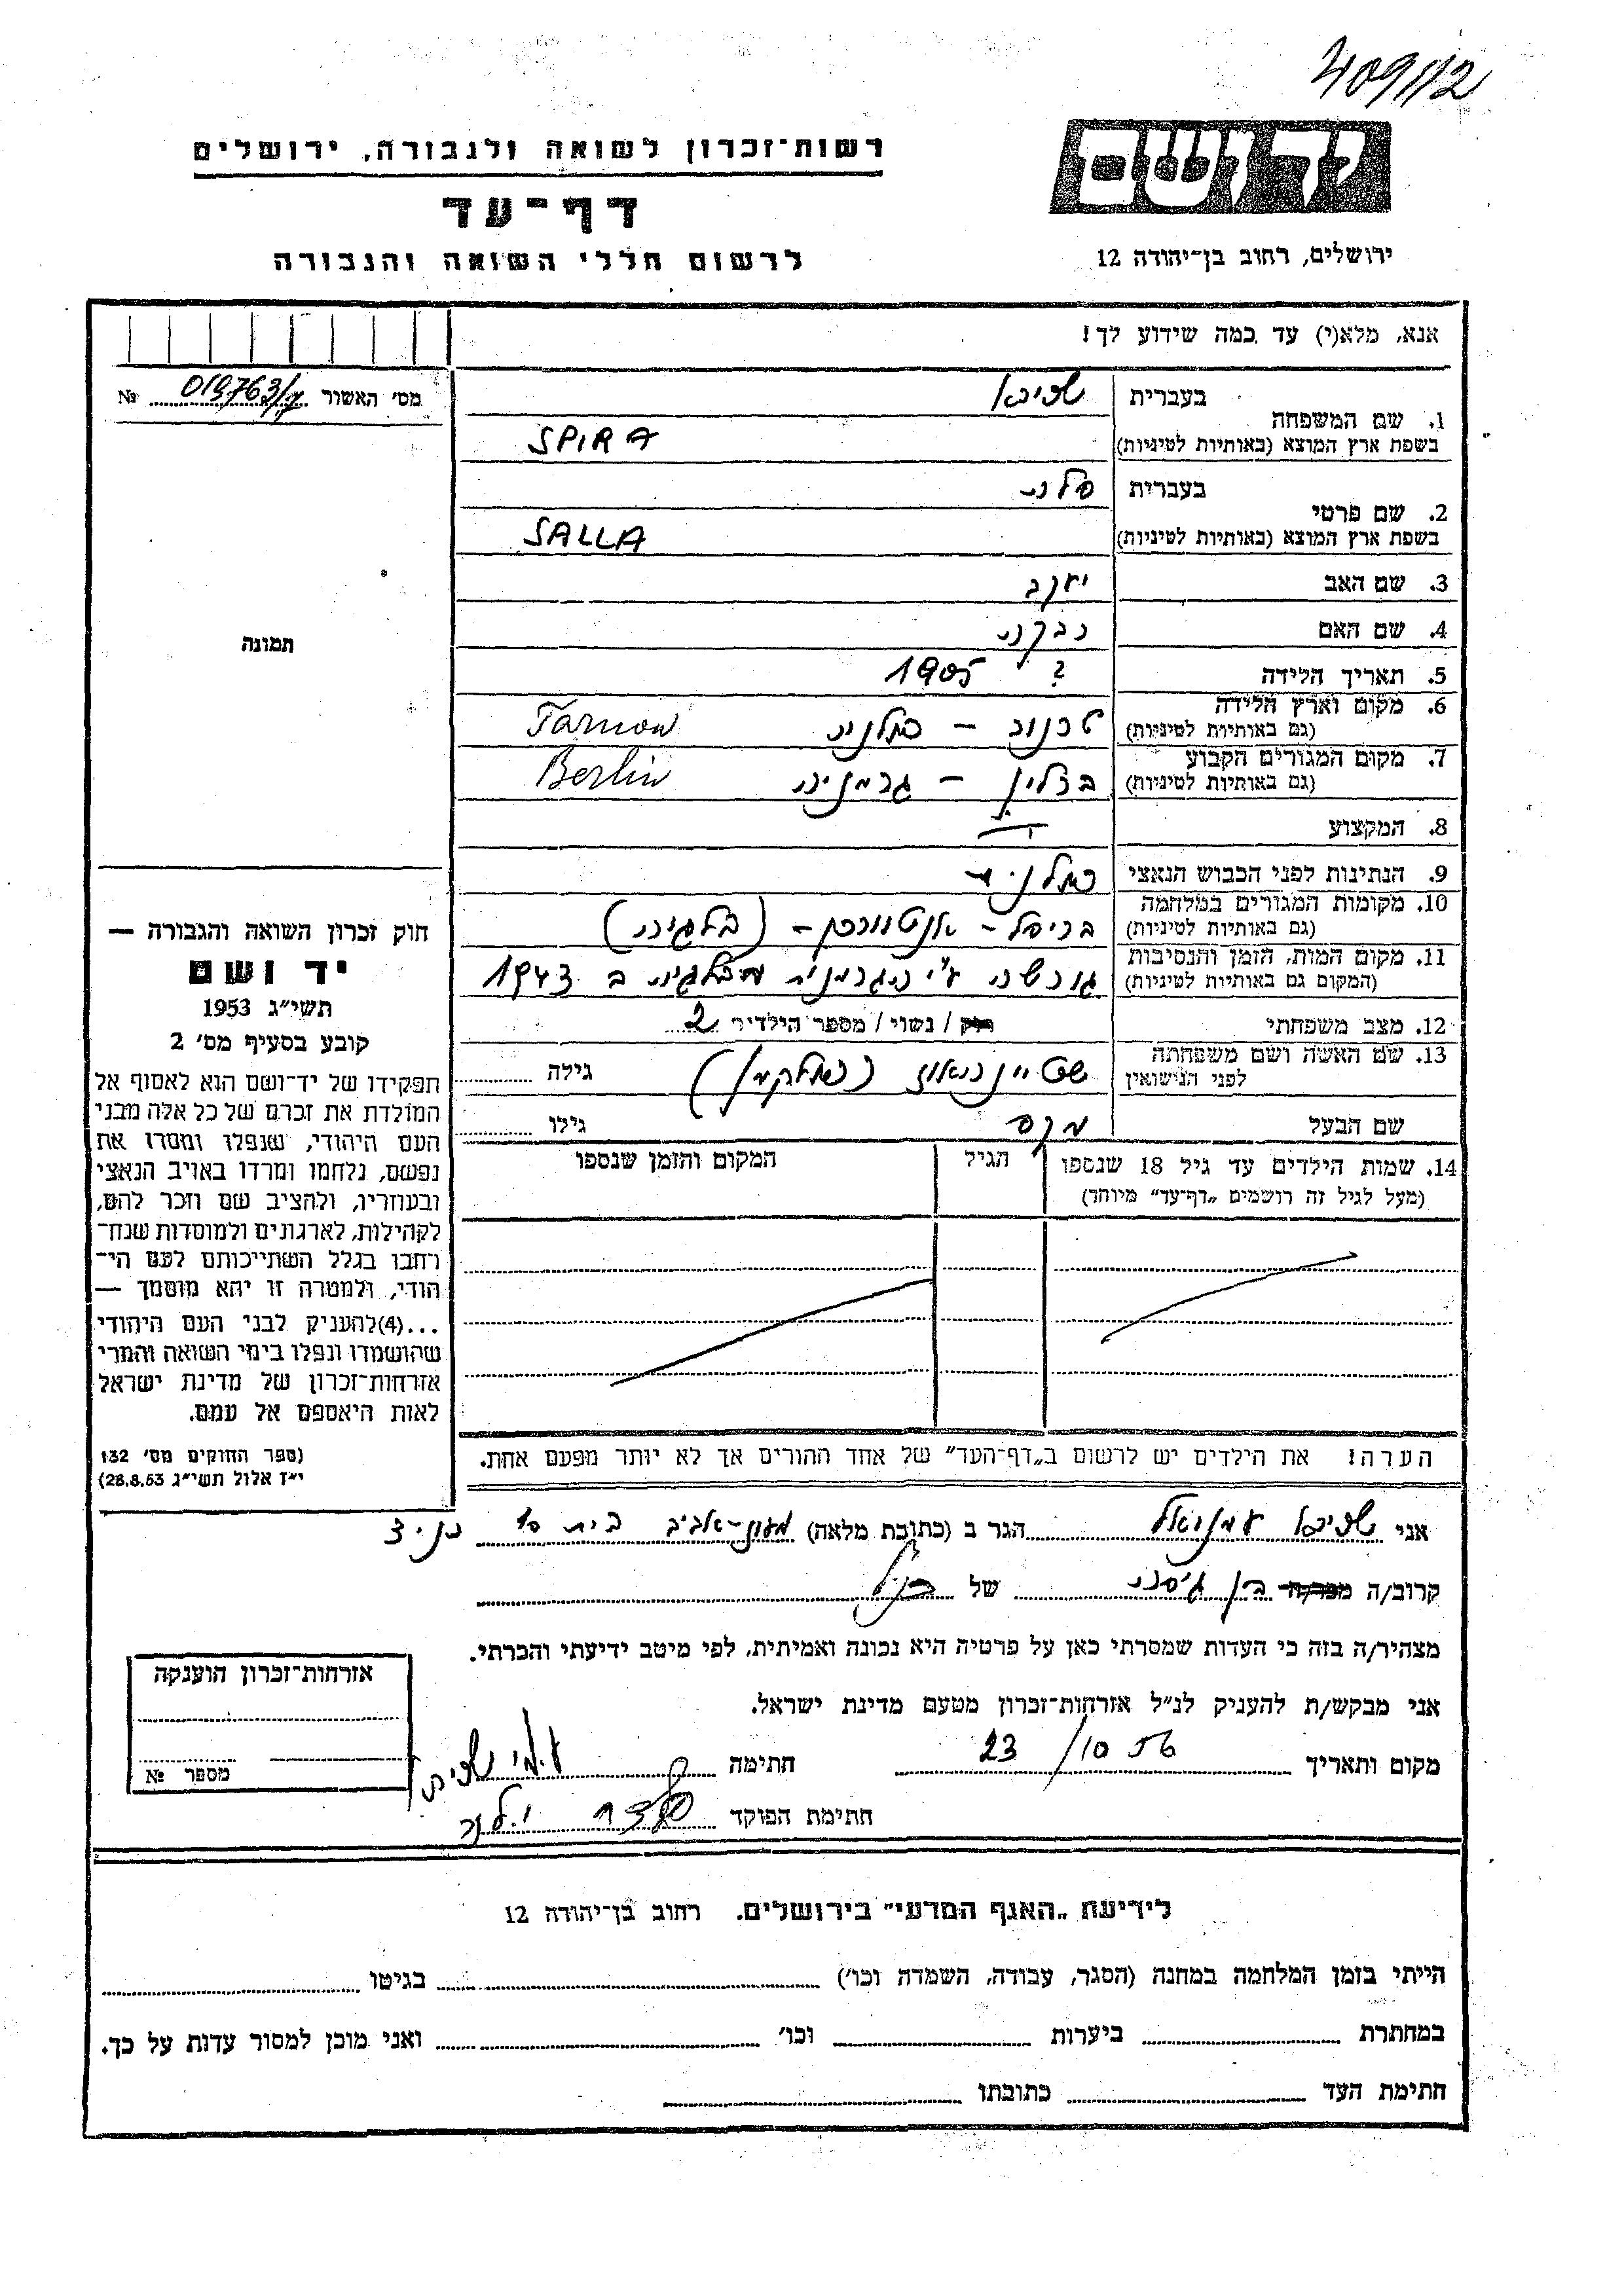 409/12
רשות־זכרון לשואה ולגבורה, ירושלים
יד ושם
דף־עד
לרשום חללי השואה והגבורה
ירושלים, רחוב בן־יהודה 12
אנא, מלא(י) עד כמה שידוע לך!
מס׳ האשור № 019763/
1. שם המשפחה
בעברית שפירא
בשפת ארץ המוצא (באותיות לטיניות) SPIRA
2. שם פרטי
בעברית
בשפת ארץ המוצא (באותיות לטיניות) SALLA
3. שם האב יעקב
4. שם האם רבקה
5. תאריך הלידה ? 1905
6. מקום וארץ הלידה (גם באותיות לטיניות) טרנוב – פולניה Tarnow
7. מקום המגורים הקבוע (גם באותיות לטיניות) ברלין – גרמניה Berlin
8. המקצוע
9. הנתינות לפני הכבוש הנאצי פולנית
10. מקומות המגורים במלחמה (גם באותיות לטיניות) בריסל – אנטוורפן – (בלגיה)
11. מקום המות, הזמן והנסיבות (המקום גם באותיות לטיניות) גורשה ע״י הגרמנים מבלגיה ב 1943
12. מצב משפחתי רוק / נשוי / מספר הילדים 2
13. שם האשה ושם משפחתה לפני הנישואין שטיינהאוז גילה
שם הבעל מקס גילו
14. שמות הילדים עד גיל 18 שנספו הגיל המקום והזמן שנספו
(מעל לגיל זה רושמים „דף־עד״ מיוחד)
הערה! את הילדים יש לרשום ב„דף־העד״ של אחד ההורים אך לא יותר מפעם אחת.
תמונה
חוק זכרון השואה והגבורה —
יד ושם
תשי״ג 1953
קובע בסעיף מס׳ 2
תפקידו של יד־ושם הוא לאסוף אל
המולדת את זכרם של כל אלה מבני
העם היהודי, שנפלו ומסרו את
נפשם, נלחמו ומרדו באויב הנאצי
ובעוזריו, ולהציב שם וזכר להם,
לקהילות, לארגונים ולמוסדות שנח־
רחבו בגלל השתייכותם לעם הי־
הודי, ולמטרה זו יהא מוסמך —
...(4)להעניק לבני העם היהודי
שהושמדו ונפלו בימי השואה והמרי
אזרחות־זכרון של מדינת ישראל
לאות היאספם אל עמם.
(ספר החוקים מס׳ 132
י״ז אלול תשי״ג 28.8.53)
אני שפירא עמנואל הגר ב (כתובת מלאה) מעון־אביב בית 10
קרוב/ה מכר/ה בן גיסה של הנ״ל
מצהיר/ה בזה כי העדות שמסרתי כאן על פרטיה היא נכונה ואמיתית, לפי מיטב ידיעתי והכרתי.
אני מבקש/ת להעניק לנ״ל אזרחות־זכרון מטעם מדינת ישראל.
מקום ותאריך 23/10 56 חתימה
חתימת הפוקד
אזרחות־זכרון הוענקה
מספר №
לידיעת „האגף המדעי״ בירושלים. רחוב בן־יהודה 12
הייתי בזמן המלחמה במחנה (הסגר, עבודה, השמדה וכו׳) בגיטו
במחתרת ביערות וכו׳ ואני מוכן למסור עדות על כך.
חתימת העד כתובתו